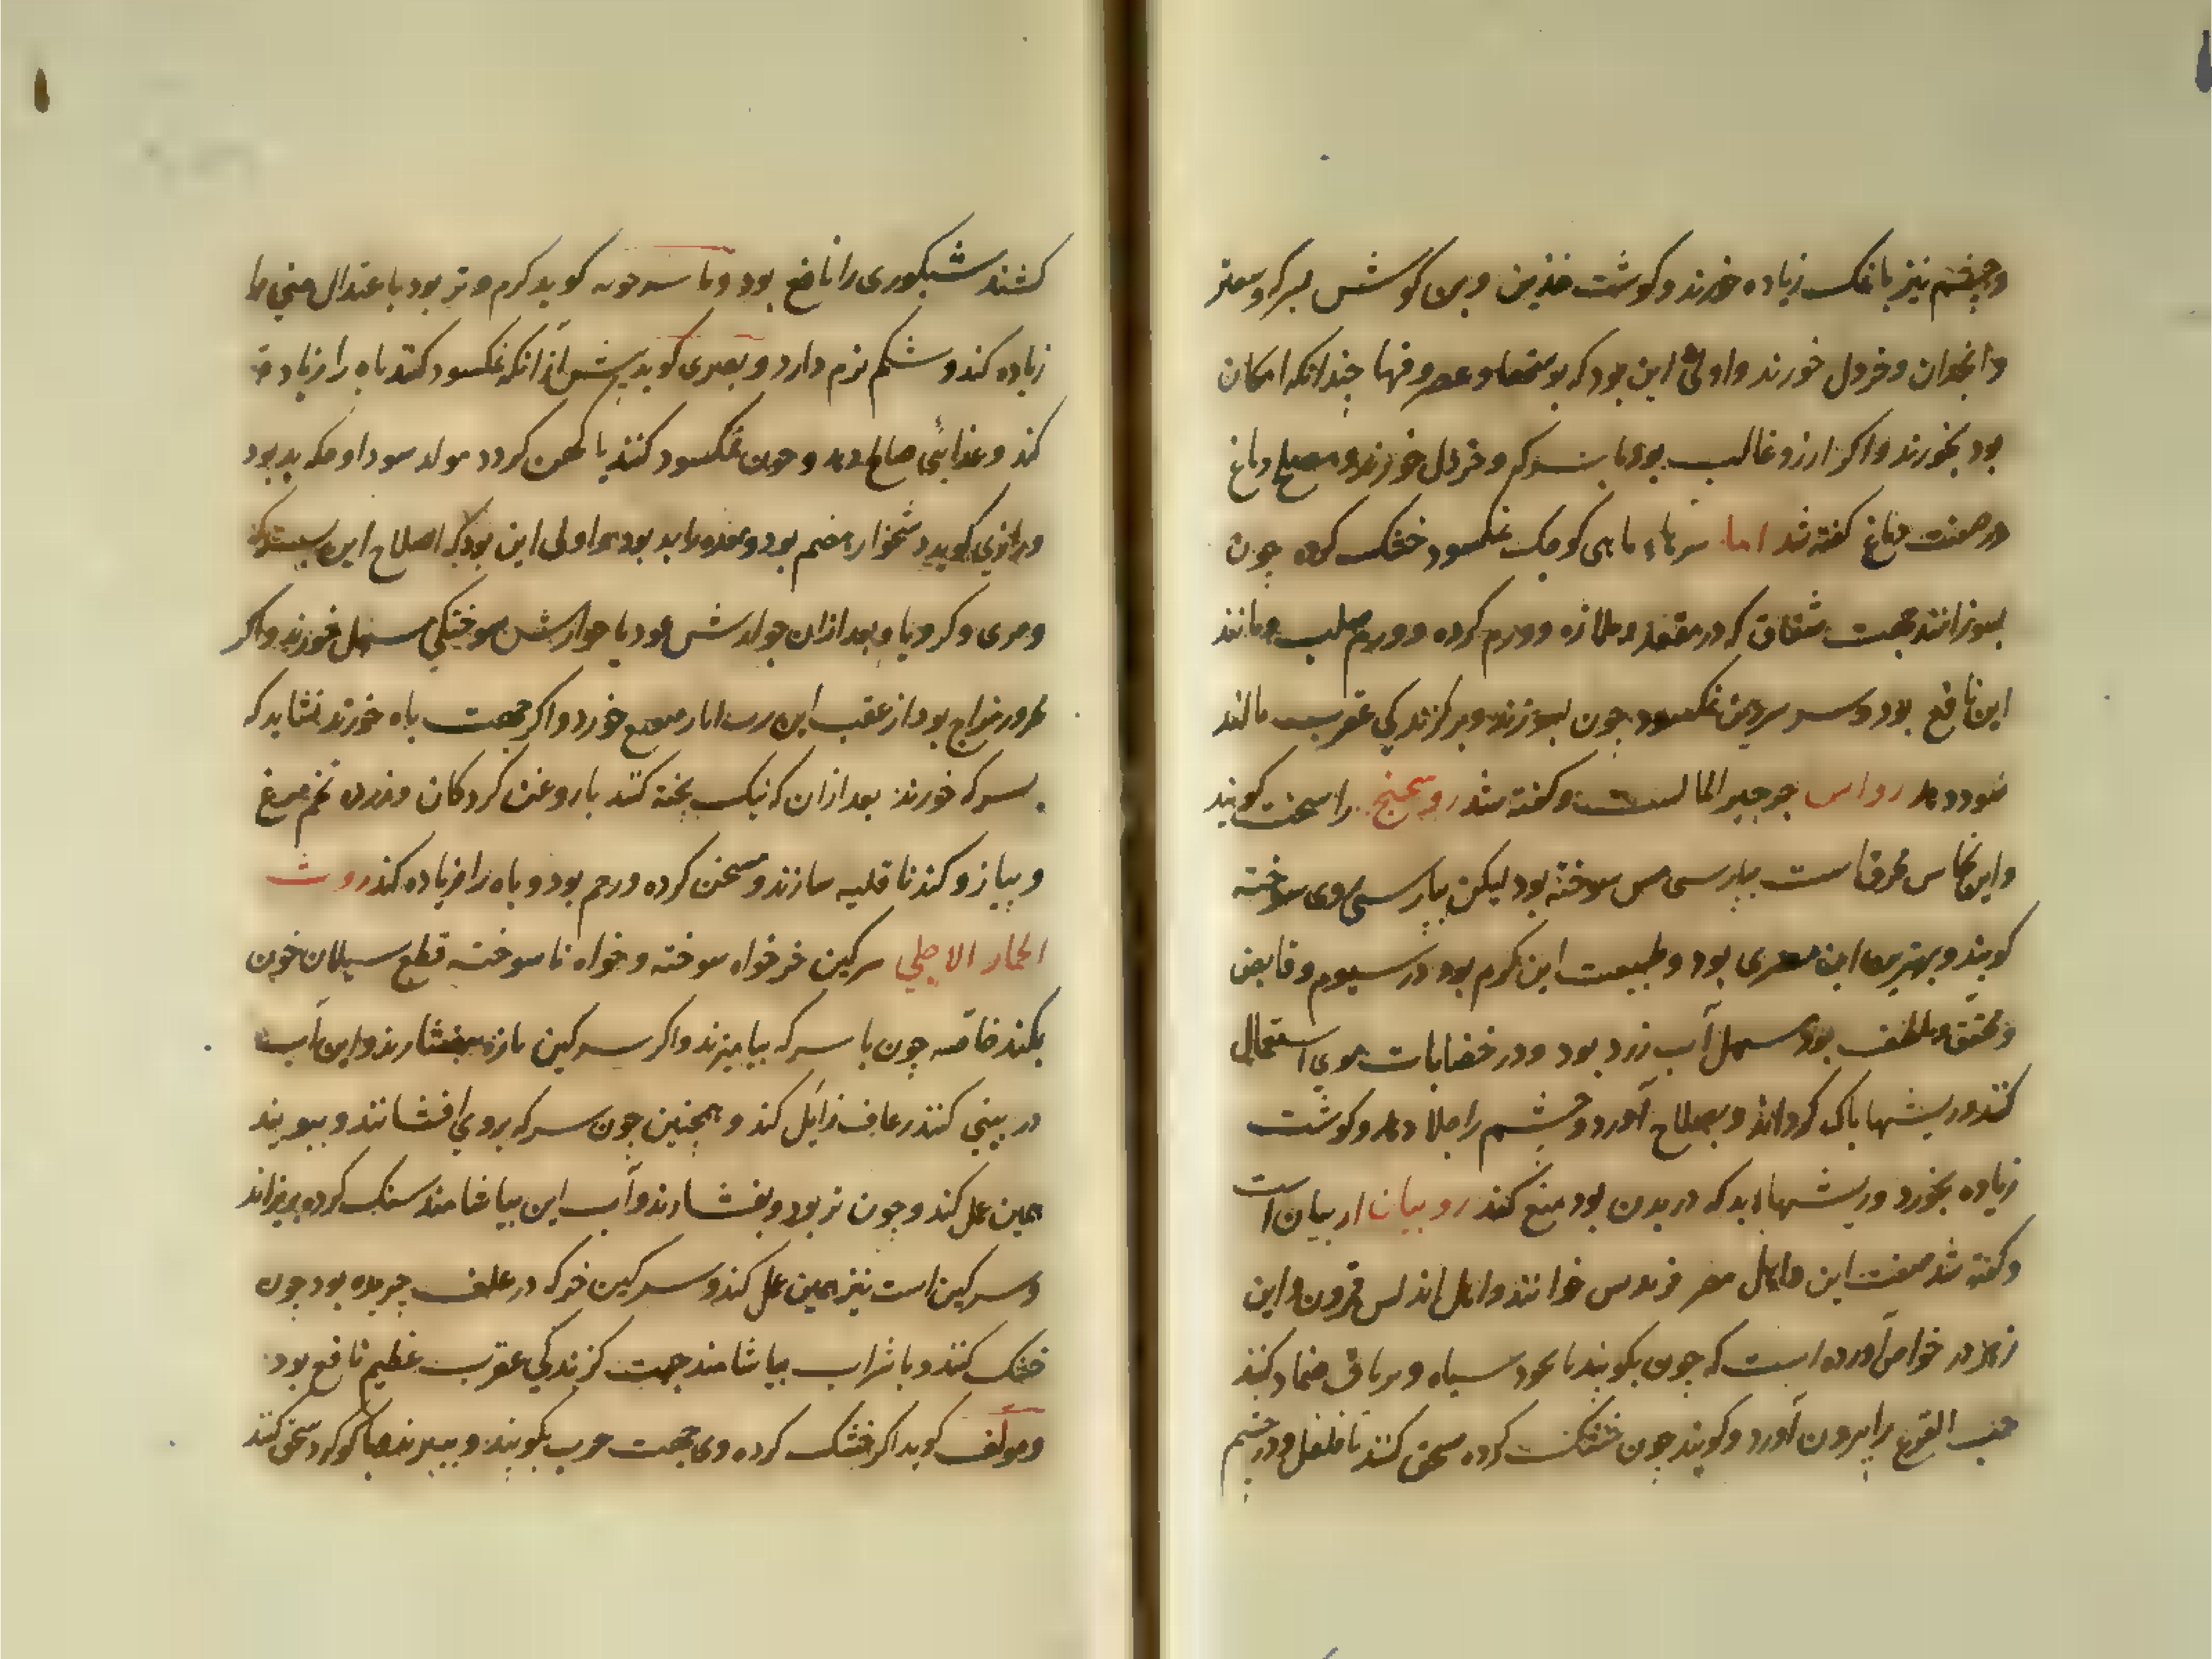 وچشم نیز با نمک زیاده خورند و کوشت خذین وبن کوشش بسرکه و سعتر
وانجدان وخردل خورند واولی این بود که و عصر وقتها چندانکه امکان
بود بخورند واکر ارزو غالب بود با سرکه و خردل خورند و مصلح دباغ
در صفت دباغ کفته شد اما سرماء ماهی کوجک نمکسود خشک کرده چون
بسوزانند جهت شقاق که در مقعد و ملازه و ورم کرده و ورم صلب ومانند
این نافع بود وسر سردین نمکسود چون بسوزند وبر کزندکی عقرب مالند
سود دهد رواس جرجیر الما است وکفته شد روسختج راسخت کویند
واین نحاس محرق است بپارسی مس سوخته بود لیکن بپارسی روی سوخته
کویند وبهترین این مصری بود وطبیعت این کرم بود در سیوم و قابض
و محتق و ملطف بود مسهل آب زرد بود ودر خضابات موی استعمال
کنند وریشها پاک کرداند وبصلاح آورد و چشم را جلا دهد وکوشت
زیاده بخورد وریشهاء بد که در بدن بود منع کند روبیان اربیان است
وکفته شد صفت این واهل مصر فریدس خوانند واهل اندلس قمرون واین
زهر در خواص آورده است که چون بکویند با نخود سیاه و برناف ضماد کنند
حب القرع را بیرون آورد وکویند چون خشک کرده سحق کنند با فلفل ودر چشم
کشند شبکوری را نافع بود و کوید کرم وتر بود باعتدال منی را
زیاده کند وشکم نرم دارد و بصری کوید پیش از آنکه نمکسود کنند باه را زیاده
کند وغذایی صالح دهد وچون نمکسود کنند یا کهن کردد مولد سودا وحکه بد بود
ورازی کوید دشخوار هضم بود ومعده را بد بود و اولی این بود که اصلاح این بسبت
ومری وکرویا وبعد ازان جوارش عود یا جوارش سوختکی مسهل خورند واکر
محرور مزاج بود از عقب این رب انار خورد واکر جهت باه خورند نشاید که
بسرکه خورند بعد ازان که نیک پخته کنند با روغن کردکان وزرده تخم مرغ
وپیاز وکندنا قلیه سازند ومسخن کرده ورحم بود وباه را زیاده کند روث
الحمار الاهلی سرکین خر خواه سوخته وخواه ناسوخته قطع سیلان خون
بکند خاصه چون با سرکه بیامیزند واکر سرکین تازه بیفشارند واین آب
در بینی کنند رعاف زایل کند وهمچنین چون سرکه بروی افشانند وببویند
همین عمل کند وچون تر بود وبفشارند وآب این بیاشامند سنک کرده بریزاند
وسرکین است نیز همین عمل کند وسرکین خر که در علف چریده بود چون
خشک کنند وبا شراب بیاشامند جهت کزندکی عقرب عظیم نافع بود
ومولف کوید اکر خشک کرده وی جهت جرب بکویند وببیزند با کوکرد سحق کنند